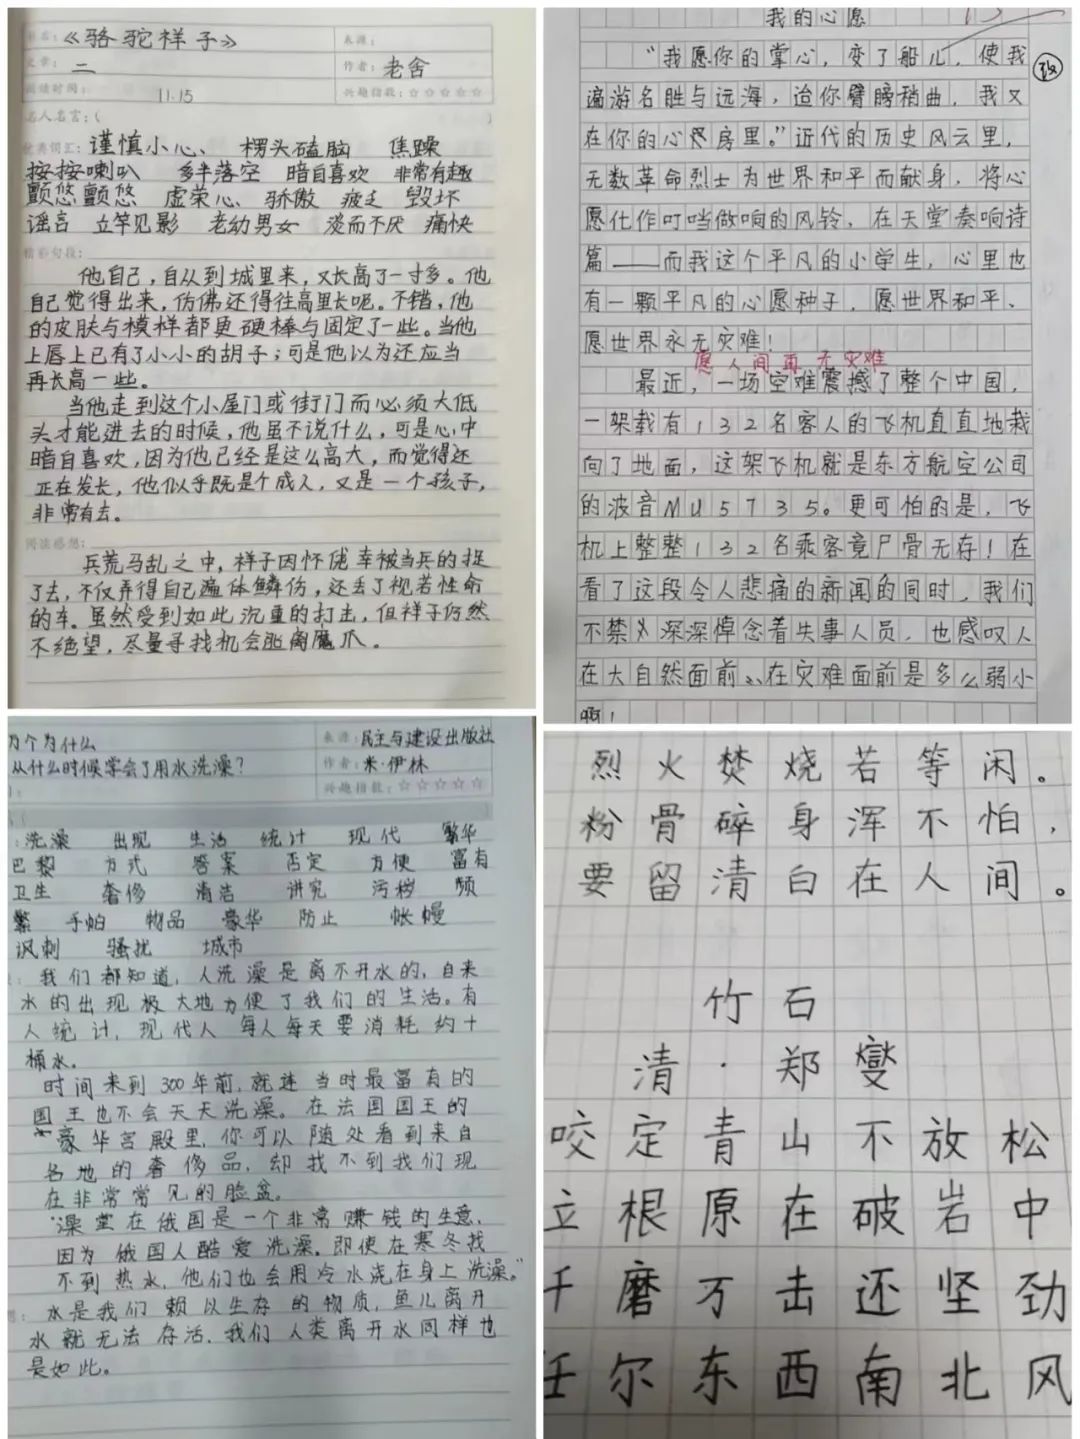 书名：《骆驼祥子》
来源：
文章：二
作者：老舍
阅读时间：11.15
兴趣指数：☆☆☆☆☆
名人名言：（ ）
优美词汇：谨慎小心、 楞头磕脑 焦躁
按按喇叭 多半落空 暗自喜欢 非常有趣
颤悠颤悠 虚荣心 骄傲 疲走 毁坏
谣言 立竿见影 老幼男女 淡而不厌 痛快
精彩句段：
他自己，自从到城里来，又长高了一寸多。他
自己觉得出来，仿佛还得往高里长呢。不错，他
的皮肤与模样都更硬棒与固定了一些。当他
上唇上已有了小小的胡子；可是他以为还应当
再长高一些。
当他走到这个小屋门或街门而必须大低
头才能进去的时候，他虽不说什么，可是心中
暗自喜欢，因为他已经是这么高大，而觉得还
正在发长，他似乎既是个成人，又是一个孩子，
非常有去。
阅读感想：
兵荒马乱之中，祥子因怀侥幸被当兵的捉
了去，不仅弄得自己遍体鳞伤，还丢了视若性命
的车。虽然受到如此沉重的打击，但祥子仍然
不绝望，尽量寻找机会逃离魔爪。
我的心愿
“我愿你的掌心，变了船儿，使我
遍游名胜与远海，迨你臂膀稍曲，我又
在你的心房里。”近代的历史风云里，
无数革命烈士为世界和平而献身，将心
愿化作叮当做响的风铃，在天堂奏响诗
篇——而我这个平凡的小学生，心里也
有一颗平凡的心愿种子，愿世界和平、
愿世界永无灾难！
愿人间再无灾难
最近，一场空难震撼了整个中国，
一架载有132名客人的飞机直直地栽
向了地面，这架飞机就是东方航空公司
的波音MU5735。更可怕的是，飞
机上整整132名乘客竟尸骨无存！在
看了这段令人悲痛的新闻的同时，我们
不禁深深悼念着失事人员，也感叹人
在大自然面前、在灾难面前是多么弱小
啊！
为个为什么
来源：民主与建设出版社
从什么时候学会了用水洗澡？
作者：米·伊林
兴趣指数：☆☆☆☆☆
：洗澡 出现 生活 统计 现代 繁华
巴黎 方式 答案 否定 方便 富有
卫生 奢侈 清洁 讲究 污秽 频
繁 手帕 物品 豪华 防止 帐幔
讽刺 骚扰 城市
：我们都知道，人洗澡是离不开水的，自来
水的出现极大地方便了我们的生活。有
人统计，现代人每人每天要消耗约十
桶水。
时间来到300年前，就连当时最富有的
国王也不会天天洗澡。在法国国王的
豪华宫殿里，你可以随处看到来自
各地的奢侈品，却找不到我们现
在非常常见的脸盆。
“澡堂在俄国是一个非常赚钱的生意，
因为俄国人酷爱洗澡。即使在寒冬找
不到热水，他们也会用冷水浇在身上洗澡。”
：水是我们赖以生存的物质，鱼儿离开
水就无法存活，我们人类离开水同样也
是如此。
烈火焚烧若等闲。
粉骨碎身浑不怕，
要留清白在人间。
竹石
清·郑燮
咬定青山不放松
立根原在破岩中
千磨万击还坚劲
任尔东西南北风